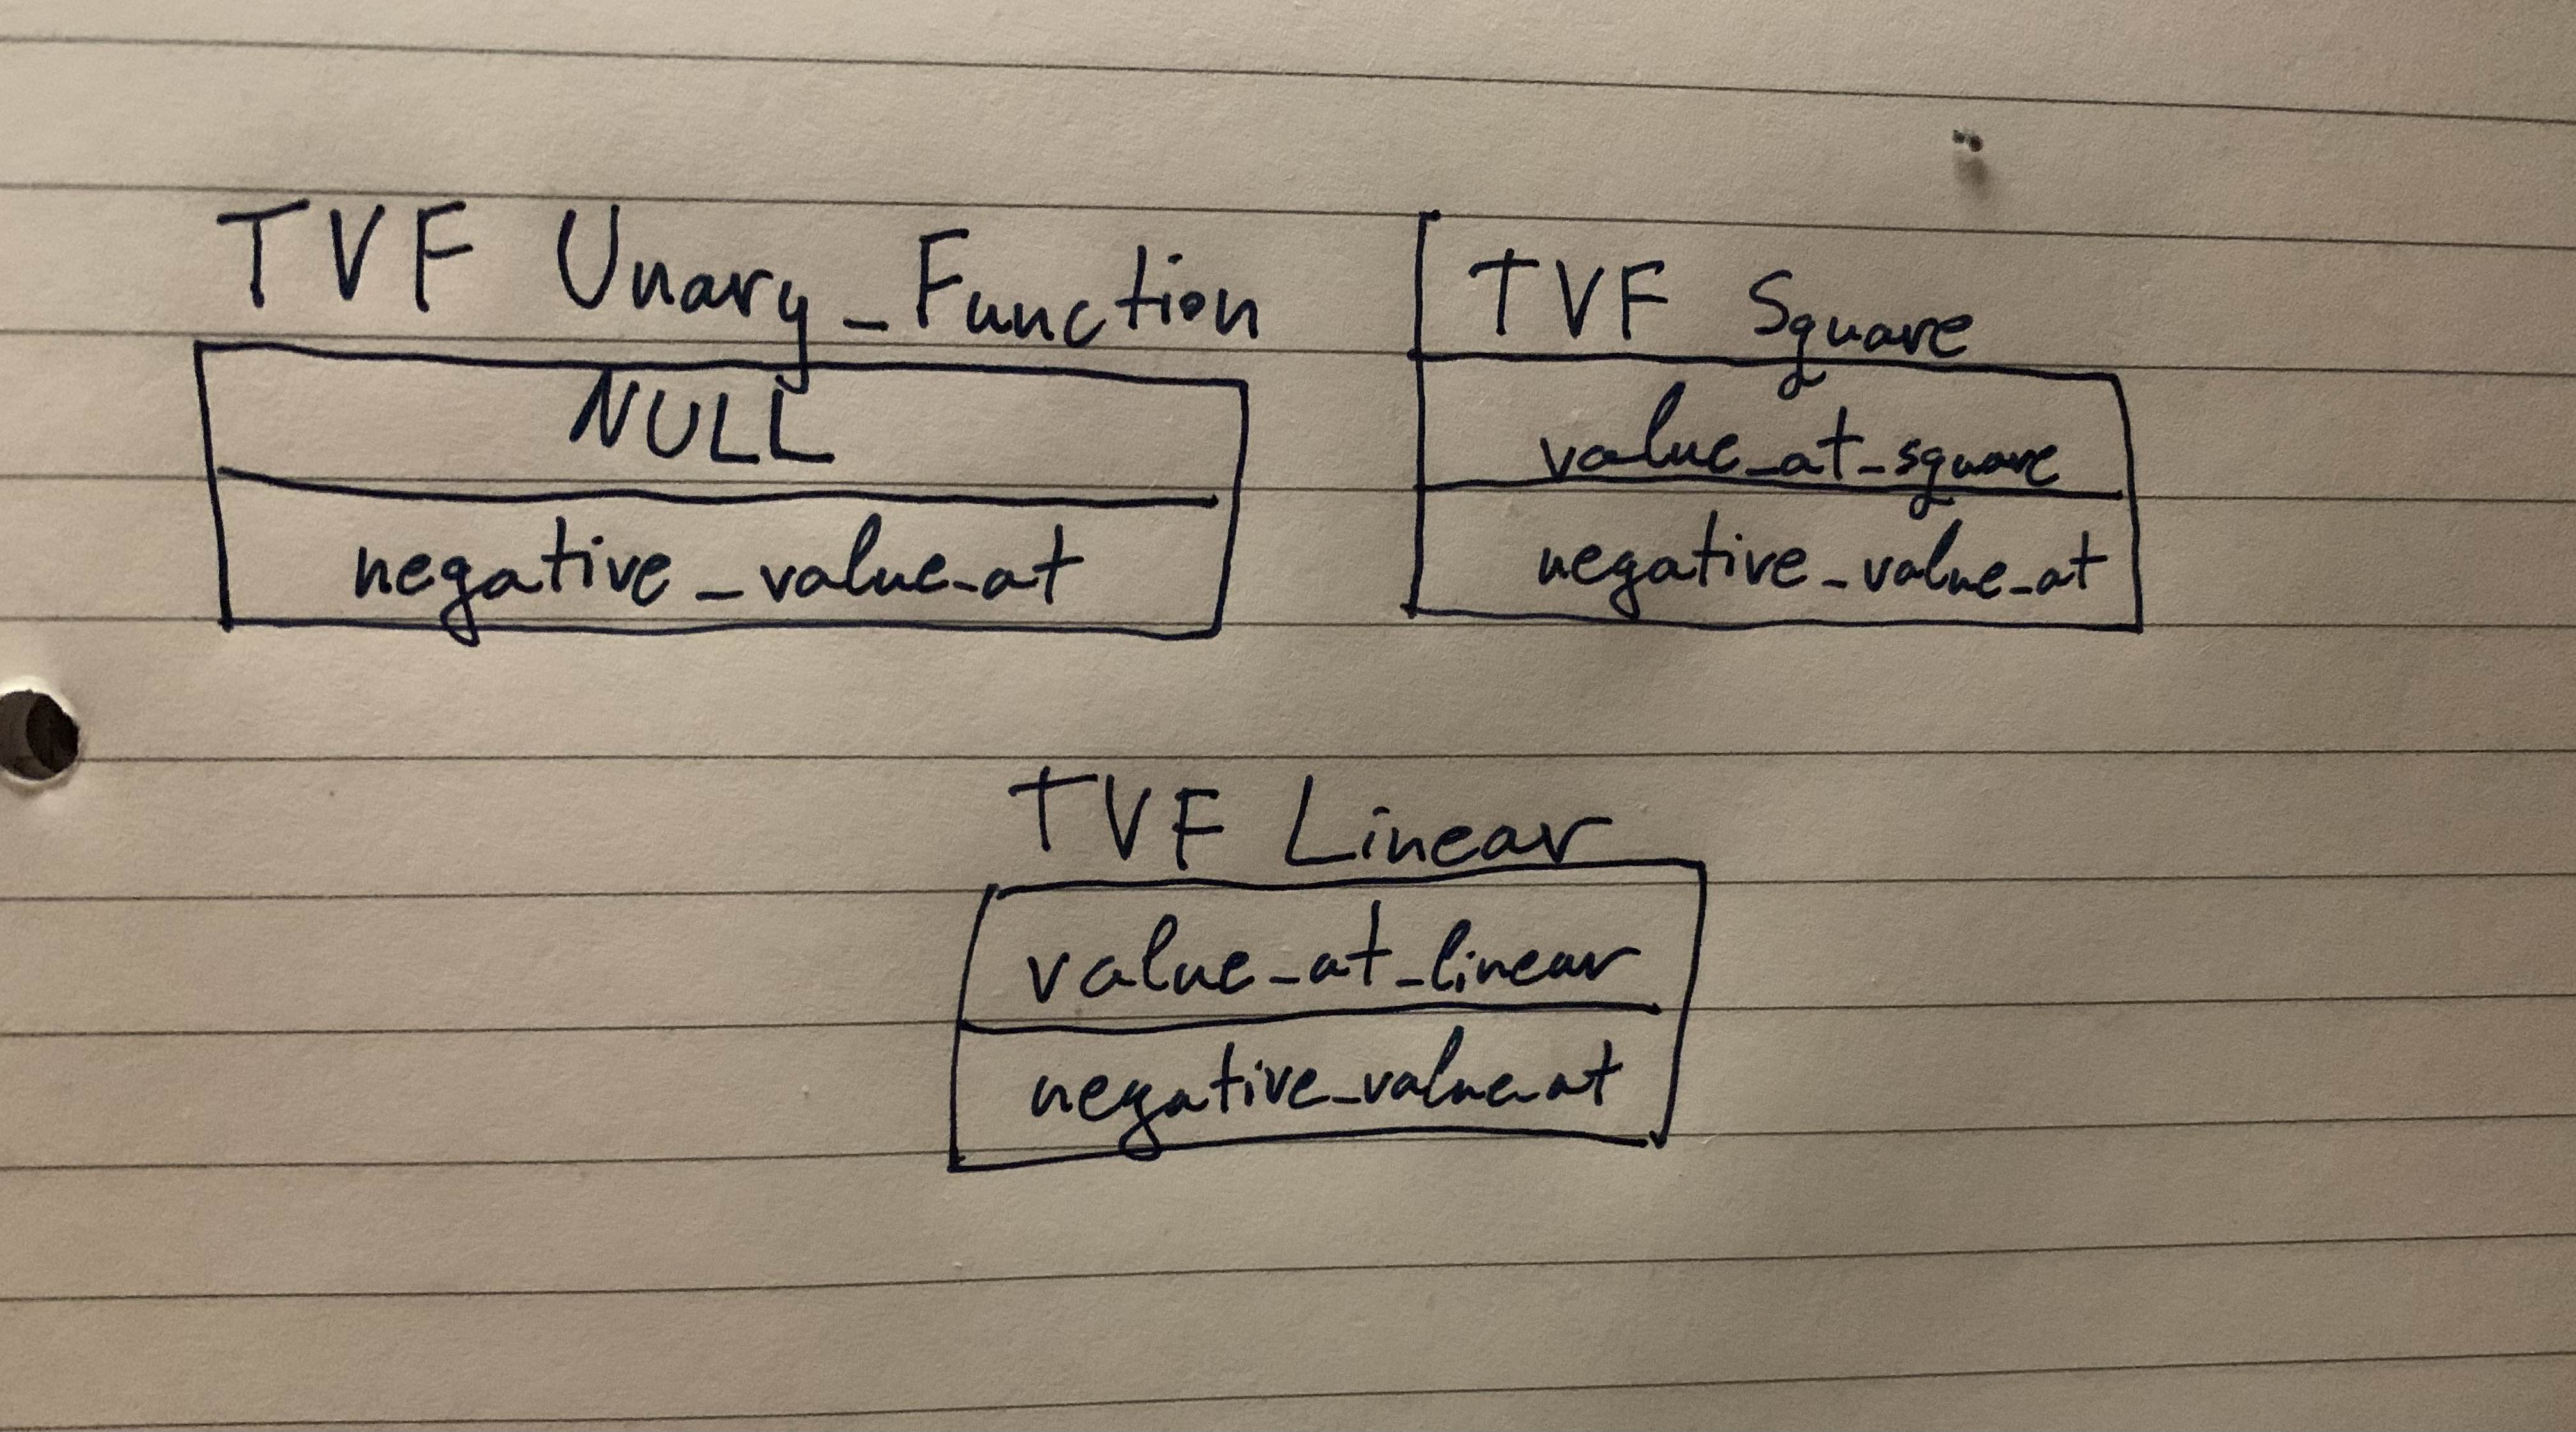 TVF Unary_Function
NULL
negative_value_at
TVF Square
value_at_square
negative_value_at
TVF Linear
value_at_linear
negative_value_at